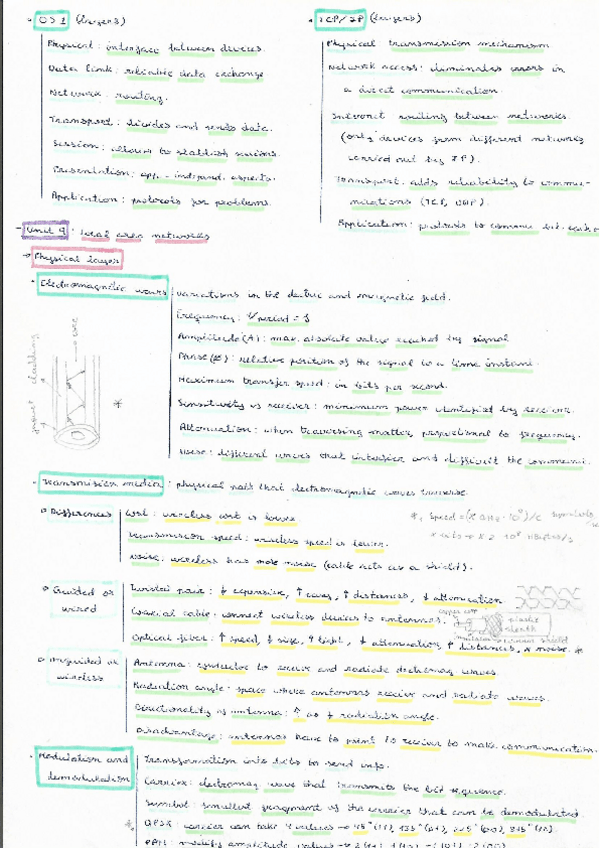 OSI (layers)
Physical: interface between devices.
Data link: reliable data exchange
Network: routing.
Transport: divides and sends data.
Session: allows to stablish sessions.
Presentation: app-independ. aspects.
Application: protocols for problems.
TCP/IP (layers)
Physical: transmission mechanism
Network access: eliminates errors in
a direct communication.
Internet: routing between networks.
(only devices from different networks
carried out by IP).
Transport: adds reliability to commu-
nications (TCP, UDP).
Application: protocols to
Unit 9: local area networks
Physical layer
Electromagnetic waves: variations in the electric and magnetic field.
Frequency: 1/period = f
Amplitude (A): max. absolute value reached by signal
Phase (ø): relative position of the signal to a time instant.
Maximum transfer speed: in bits per second.
Sensitivity of receiver: minimum power identified by receiver.
Attenuation: when traversing matter, proportional to frequency.
Noise: different waves that interfer and difficult the communi.
cladding
*
Transmission media: physical path that electromagnetic waves traverse.
Differences
Cost: wireless cost is lower
Transmission speed: wireless speed is lower.
Noise: wireless has more noise (cable acts as a shield).
Guided or
wired
Twisted pair: ↓ expensive, ↑ easy, ↑ distances, ↓ attenuation.
Coaxial cable: connect wireless devices to antennas.
Optical fiber: ↑ speed, ↓ size, ↑ light, ↓ attenuation, ↑ distances, x noise. *
plastic
sheath
Unguided or
wireless
Antenna: conductor to receive and radiate electromag waves.
Radiation angle: space where antennas receive and radiate waves.
Directionality of antenna: ↑ as ↓ radiation angle.
Disadvantage: antennas have to point to receiver to make communication.
Modulation and
demodulation
Transformation into bits to send info.
Carrier: electromag wave that transmits the bit sequence.
Symbol: smallest fragment of the carrier that can be demodulated.
QPSK: carrier can take 4 values → 45° (11), 135° (01), 225° (00), 315° (10).
PAM: modify amplitude values →